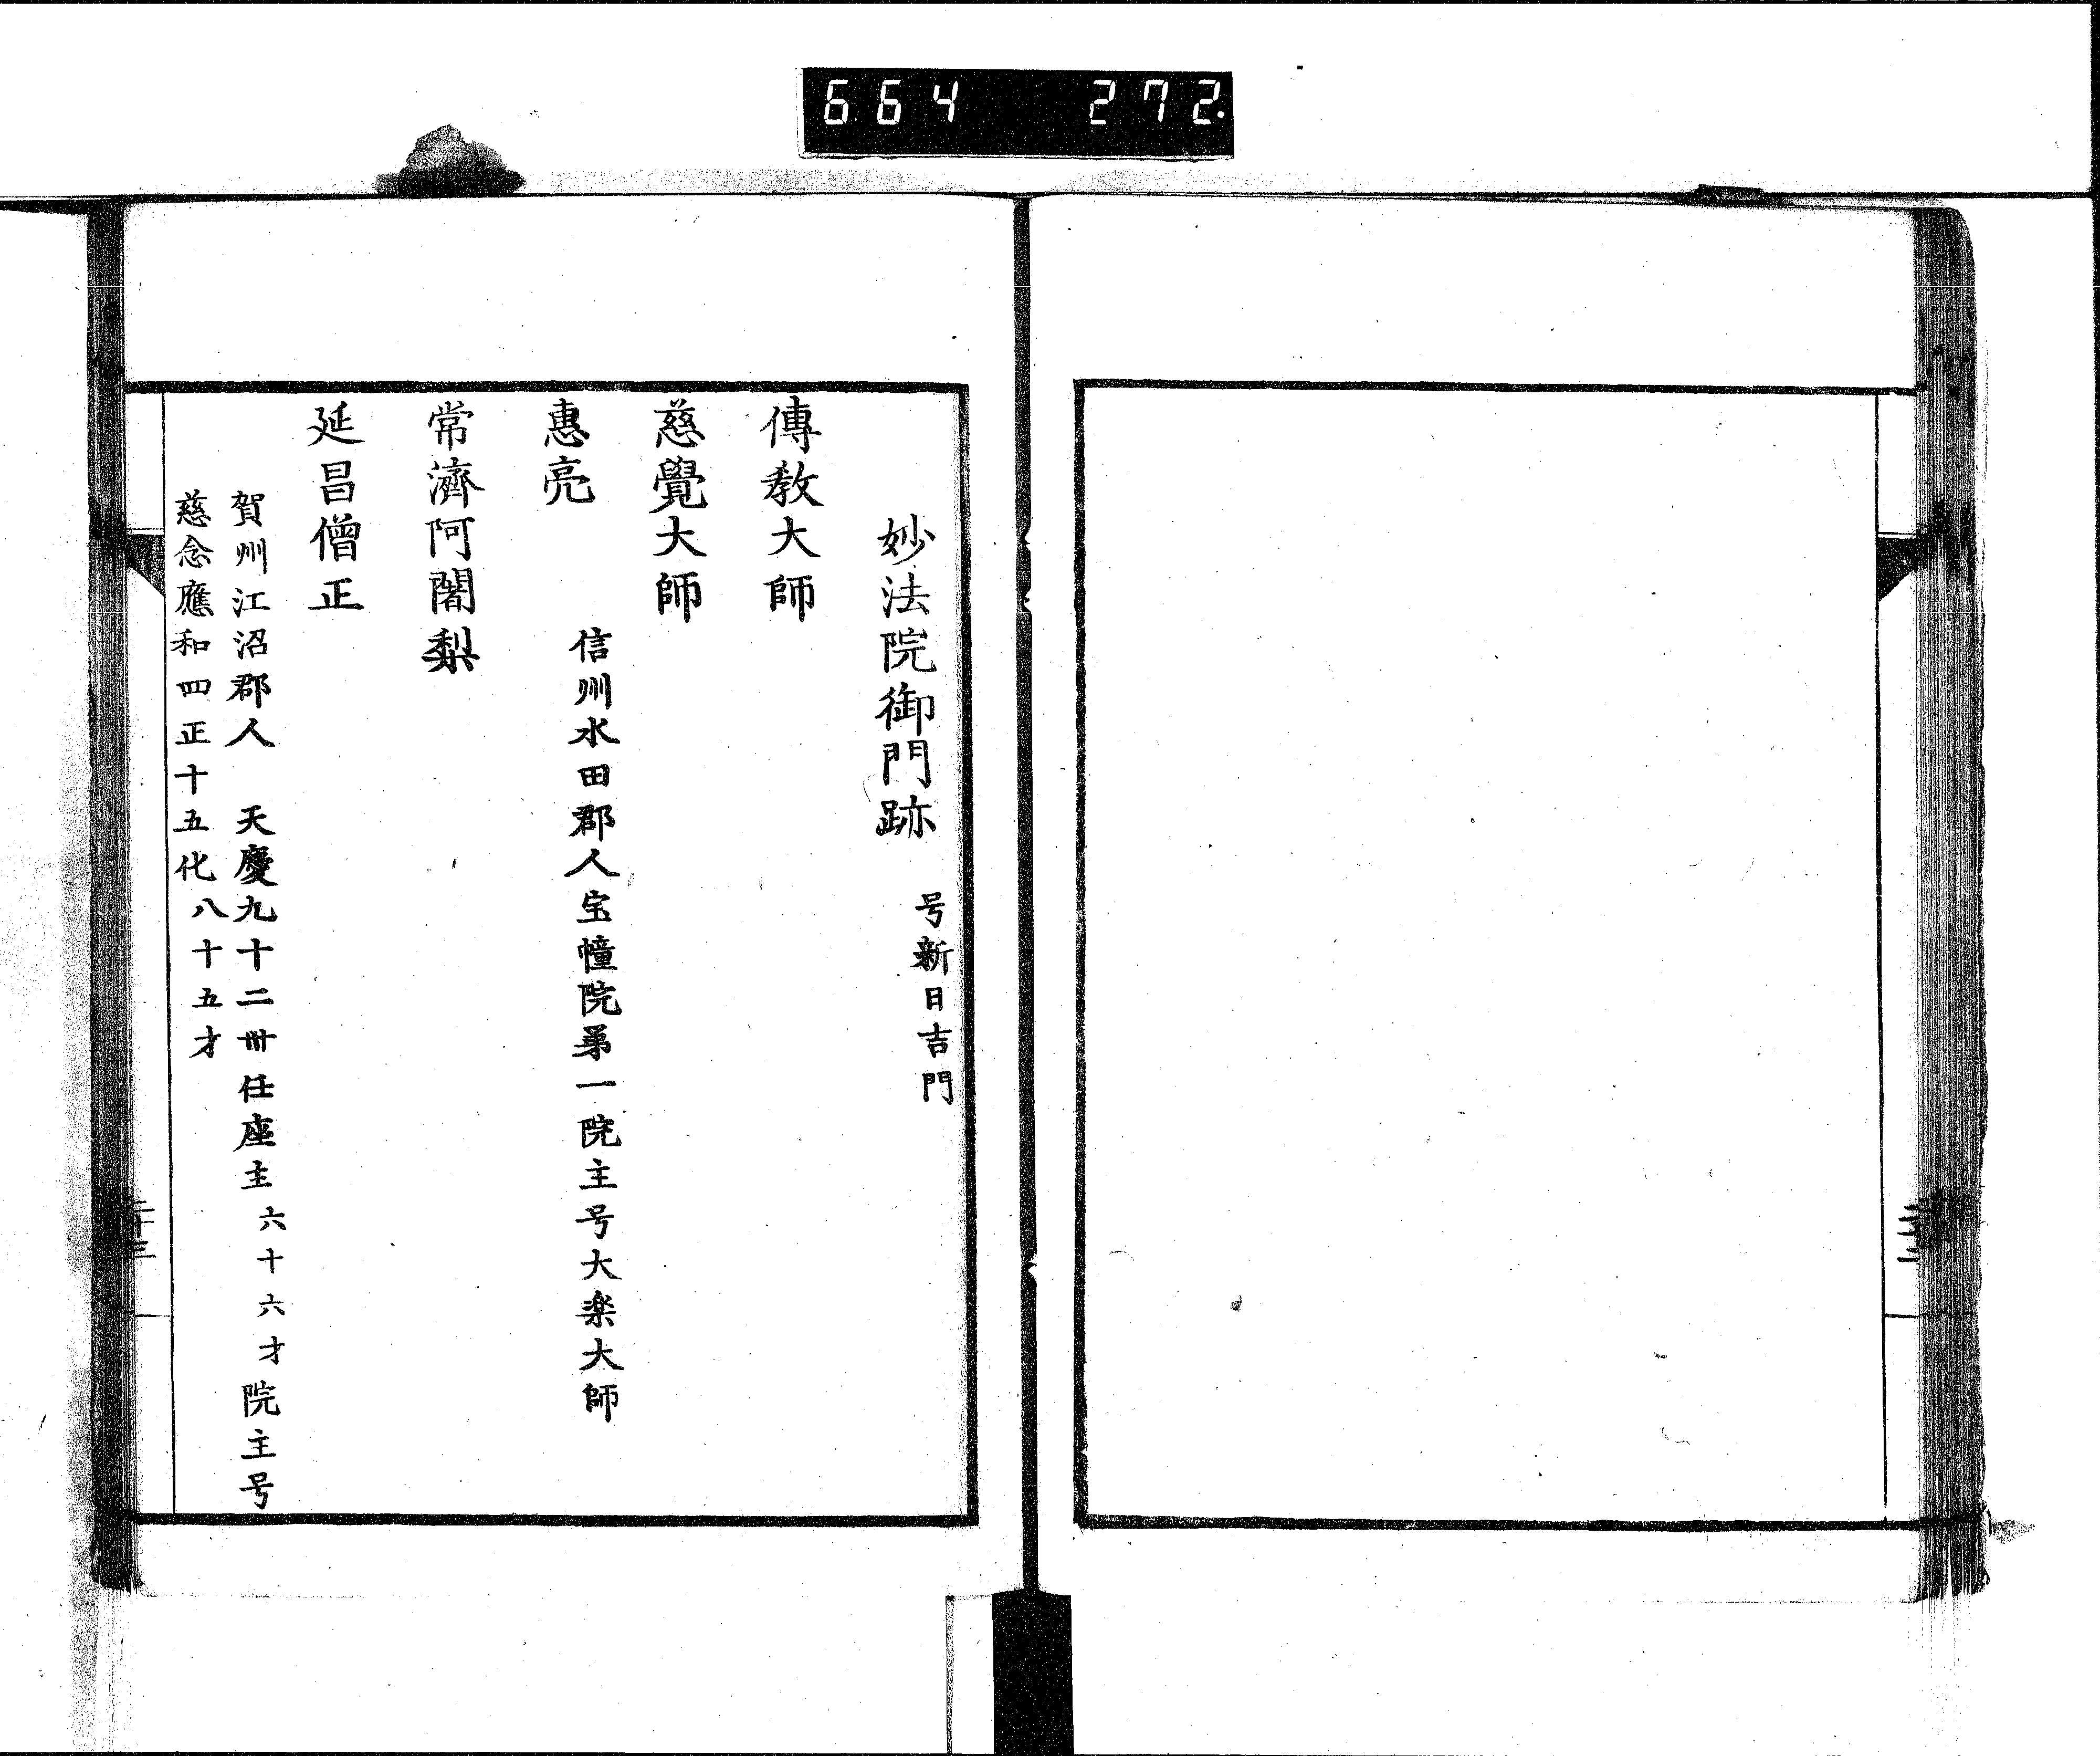 664 272.
妙法院御門跡 号新日吉門
傳教大師
慈覺大師
惠亮 信州水田郡人宝幢院第一院主号大楽大師
常濟阿闍梨
延昌僧正
賀州江沼郡人 天慶九十二卅任座主六十六才院主号
慈念應和四正十五化八十五才